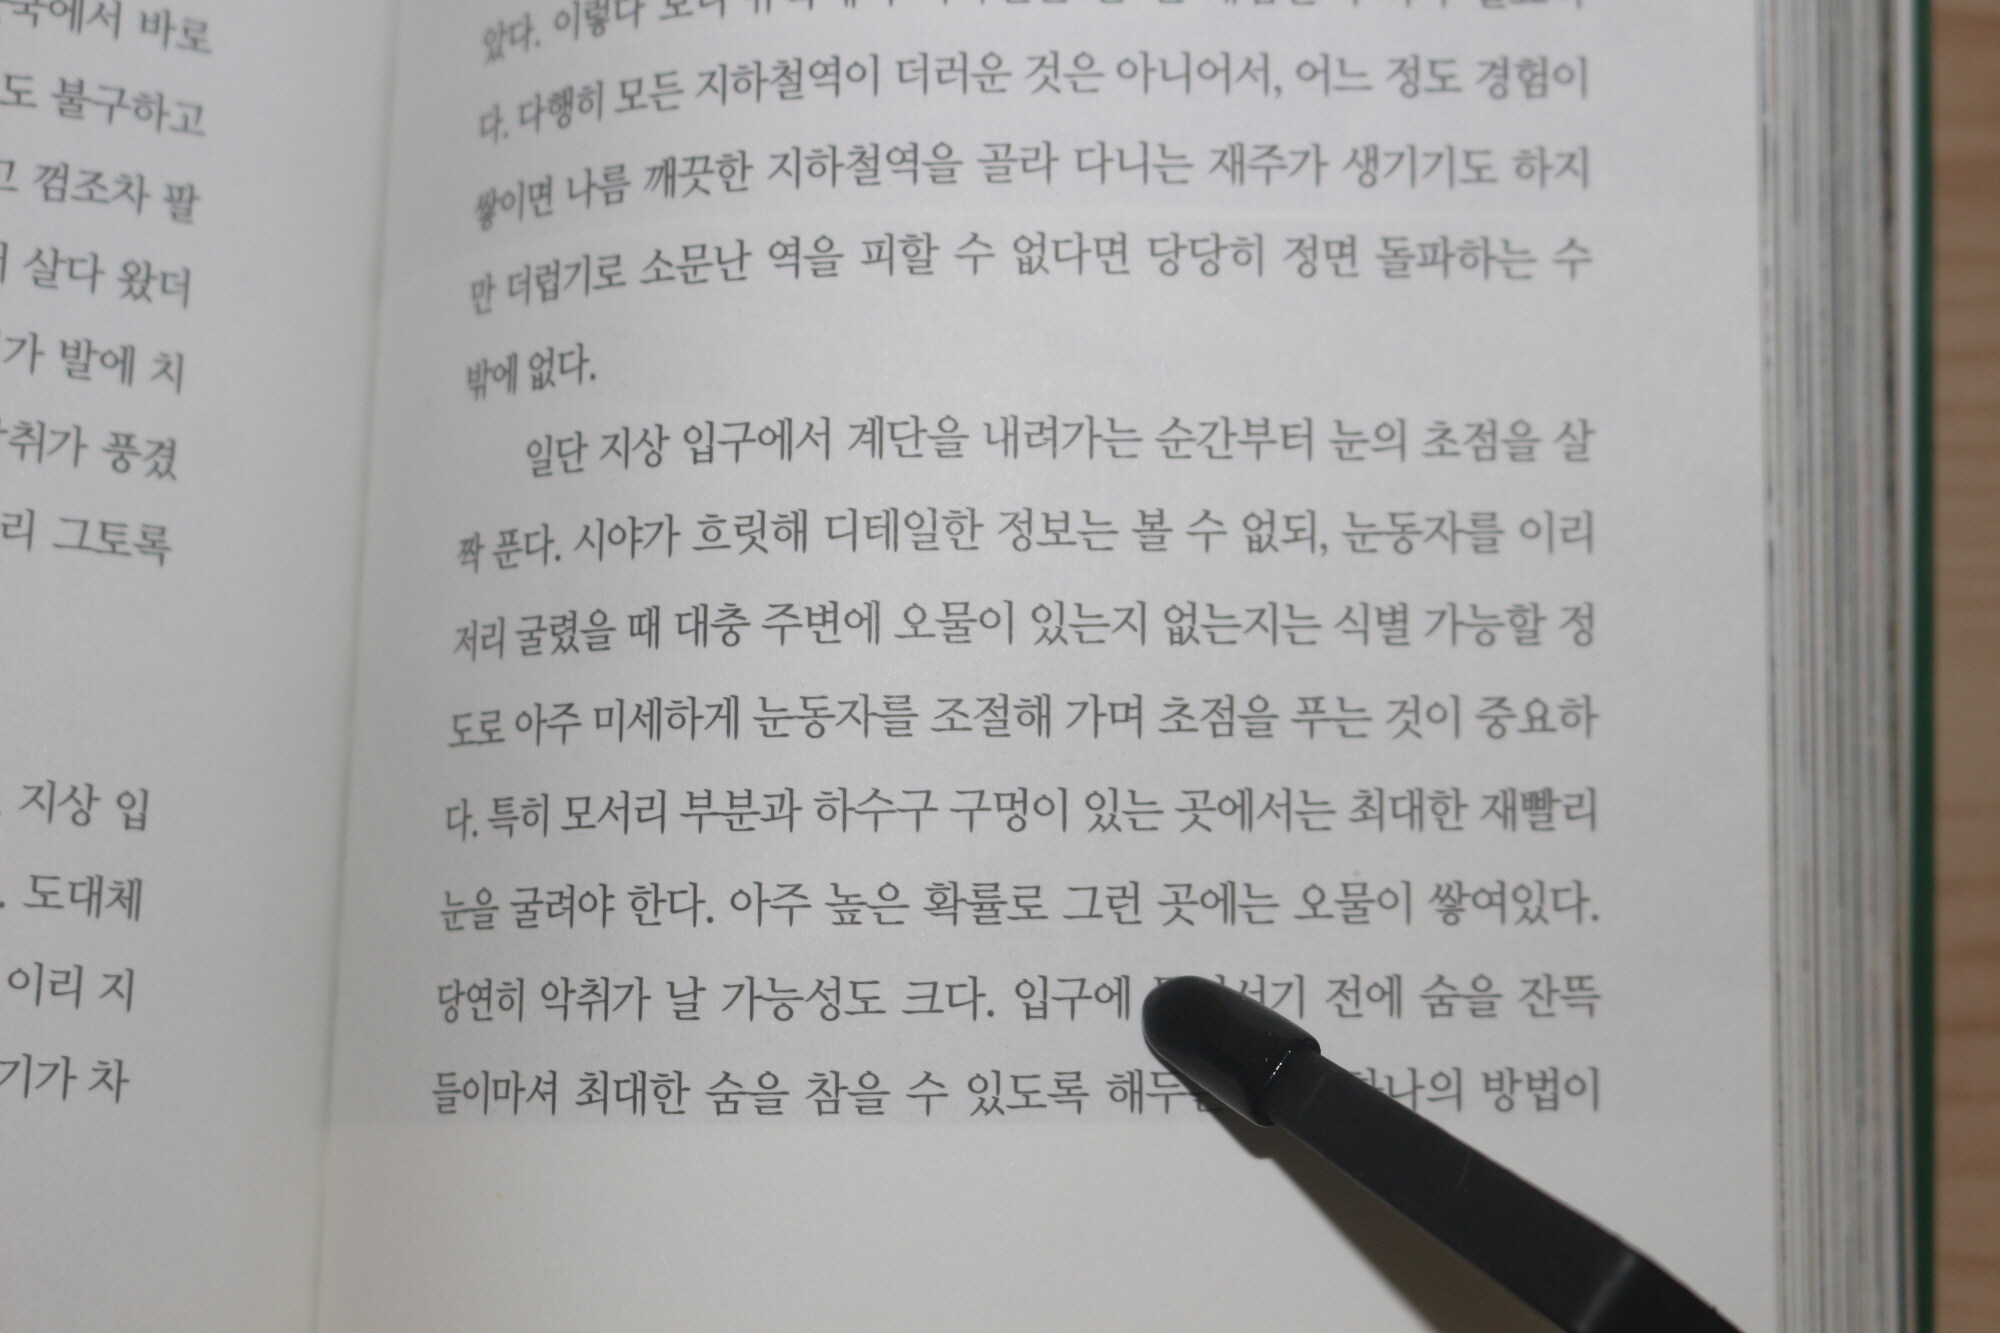 국에서 바로
도 불구하고
고 껌조차 팔
살다 왔더
가 발에 치
취가 풍겼
리 그토록
지상 입
. 도대체
이리 지
기가 차
았다. 이렇다 보니
다. 다행히 모든 지하철역이 더러운 것은 아니어서, 어느 정도 경험이
쌓이면 나름 깨끗한 지하철역을 골라 다니는 재주가 생기기도 하지
만 더럽기로 소문난 역을 피할 수 없다면 당당히 정면 돌파하는 수
밖에 없다.
일단 지상 입구에서 계단을 내려가는 순간부터 눈의 초점을 살
짝 푼다. 시야가 흐릿해 디테일한 정보는 볼 수 없되, 눈동자를 이리
저리 굴렸을 때 대충 주변에 오물이 있는지 없는지는 식별 가능할 정
도로 아주 미세하게 눈동자를 조절해 가며 초점을 푸는 것이 중요하
다. 특히 모서리 부분과 하수구 구멍이 있는 곳에서는 최대한 재빨리
눈을 굴려야 한다. 아주 높은 확률로 그런 곳에는 오물이 쌓여있다.
당연히 악취가 날 가능성도 크다. 입구에 전에 숨을 잔뜩
들이마셔 최대한 숨을 참을 수 있도록 방법이